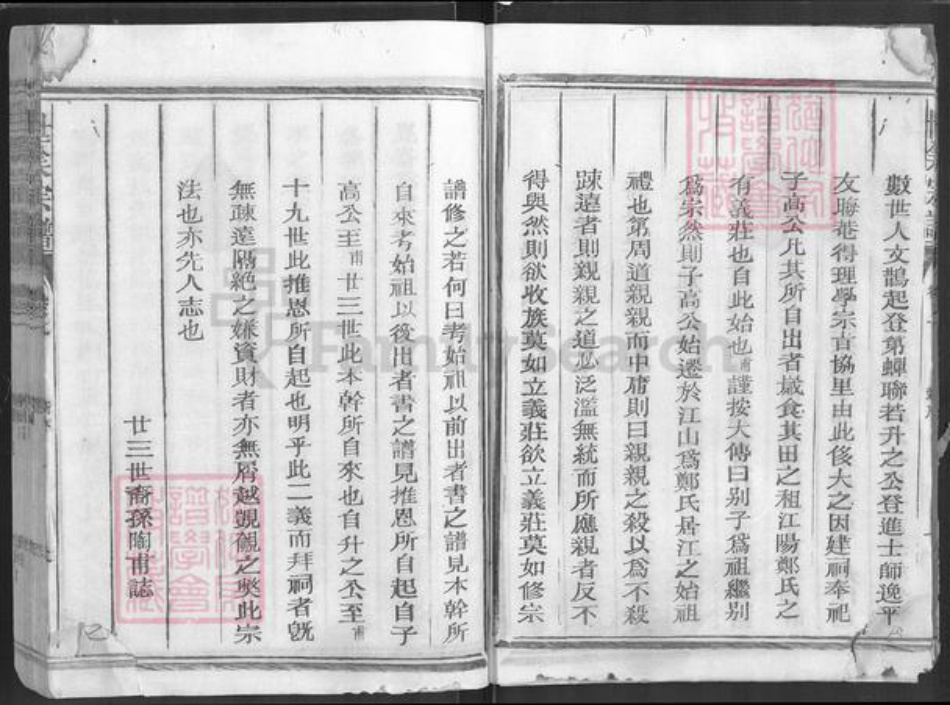 數世人文鵲起登第蟬聯若升之公登進士師逸平
友晦菴得理學宗旨協里由此侈大之因建祠奉祀
子高公凡其所自出者歲食其田之租江陽鄭氏之
有義莊也自此始也甫謹按大傳曰别子爲祖繼别
爲宗然則子高公始遷於江山爲鄭氏居江之始祖
禮也第周道親親而中庸則曰親親之殺以爲不殺
踈遠者則親親之道必泛濫無統而所應親者反不
得與然則欲收族莫如立義莊欲立義莊莫如修宗
譜修之若何曰考始祖以前出者書之譜見本幹所
自來考始祖以後出者書之譜見推恩所自起自子
高公至甫廿三世此本幹所自來也自升之公至甫
十九世此推恩所自起也明乎此二義而拜祠者旣
無疎遠隔絶之嫌資財者亦無屑越覬覦之獘此宗
法也亦先人志也
廿三世裔孫陶甫誌
FamilySearch